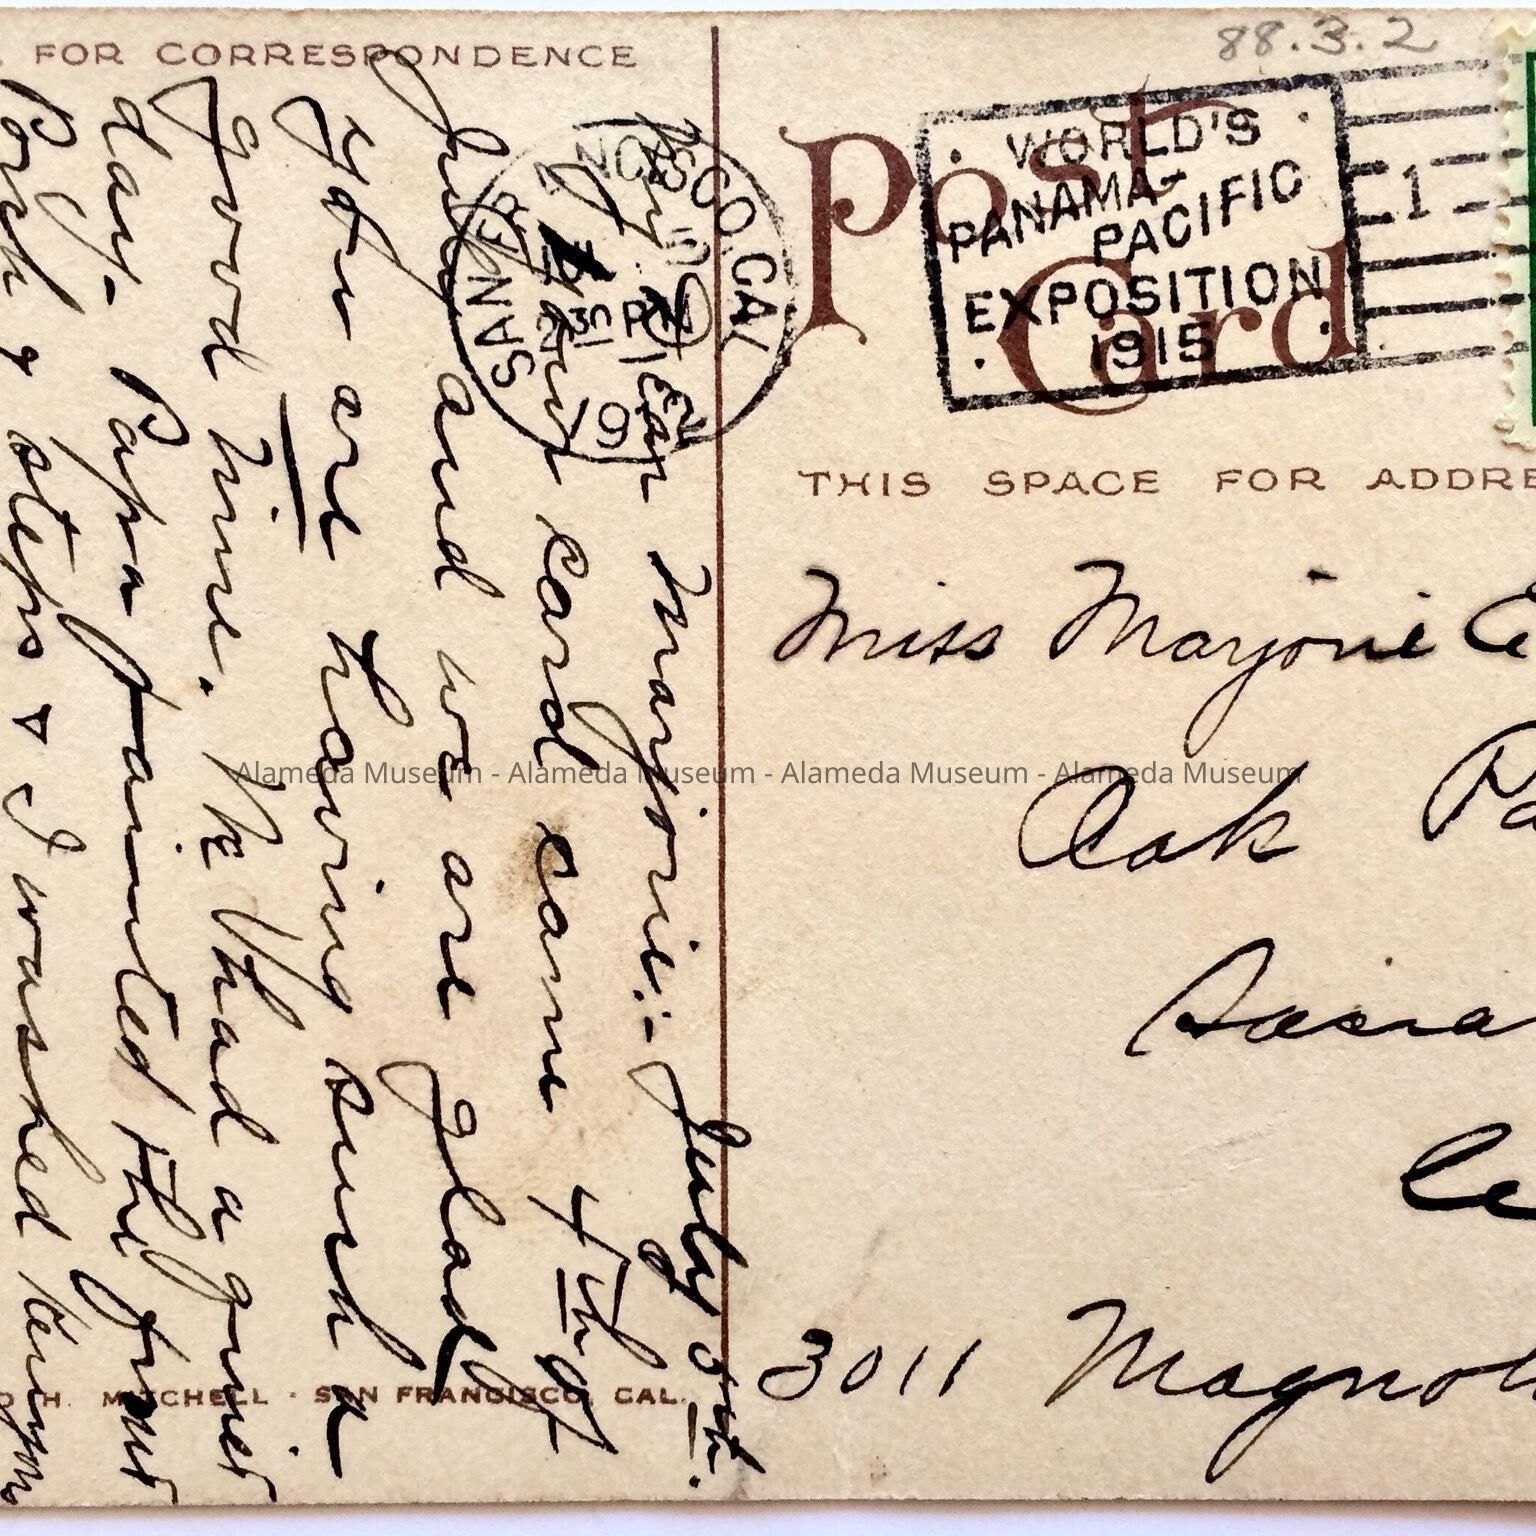 88.3.2
FOR CORRESPONDENCE
Post Card
WORLD'S
PANAMA-
PACIFIC
EXPOSITION
1915
1
SAN FRANCISCO, CAL.
30 PM
191
THIS SPACE FOR ADDRE
Miss Marjorie E
Oak Pa
Sacra
Ca
3011 Magnol
Dear Marjorie:- July 5th.
Your card came 4th of
July and we are glad
you are having such a
good time. We had a quiet
day. Papa painted the front
Porch & steps & I washed
H. MITCHELL - SAN FRANCISCO, CAL.
Alameda Museum - Alameda Museum - Alameda Museum - Alameda Museum